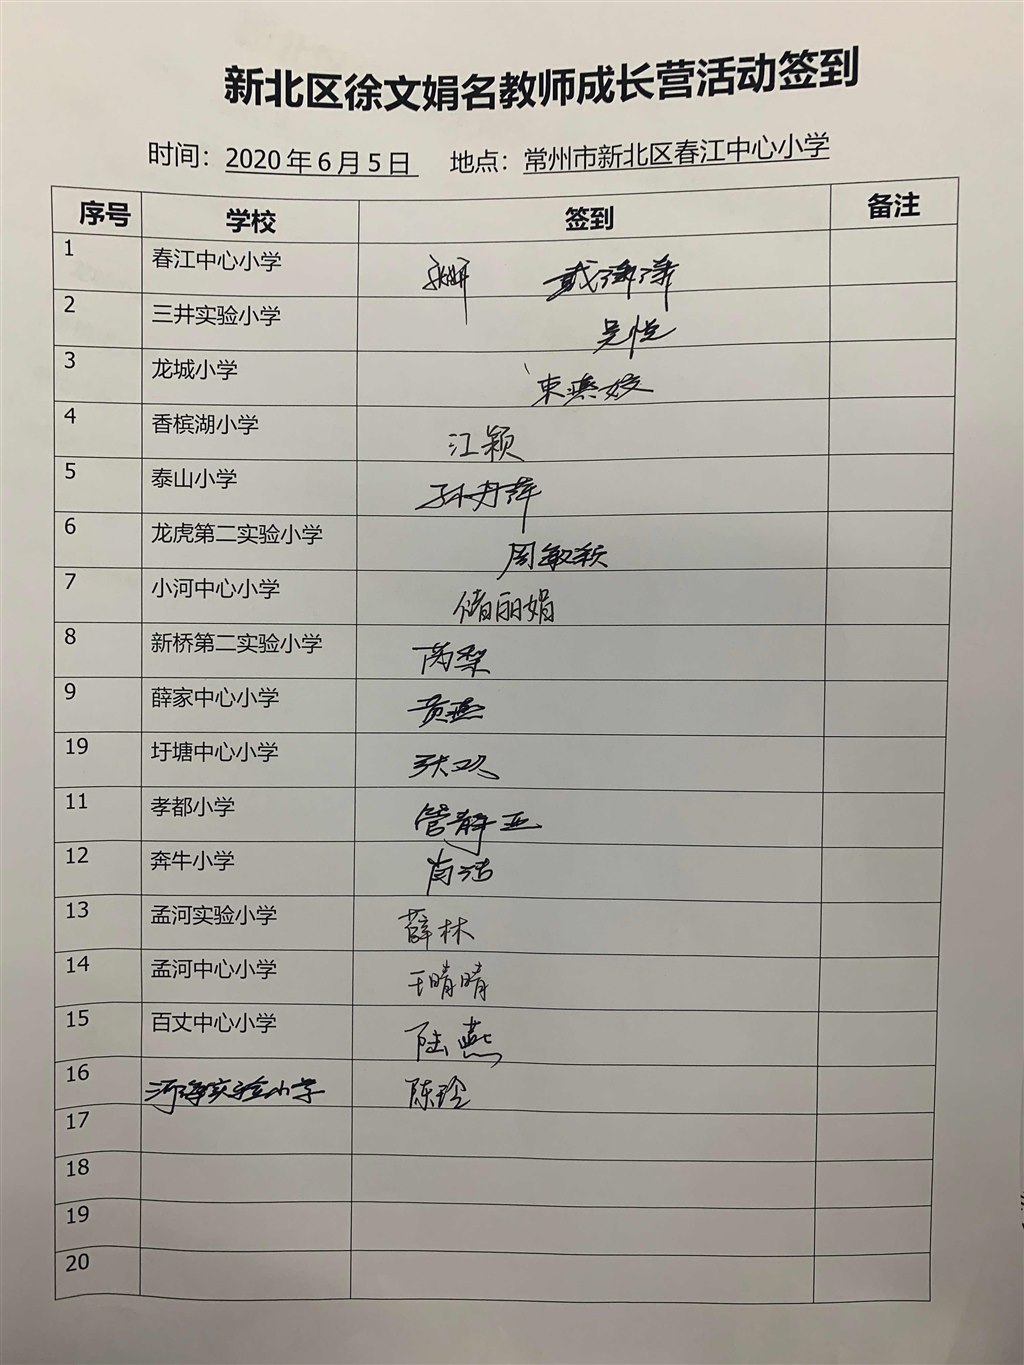 新北区徐文娟名教师成长营活动签到
时间：2020年6月5日 地点：常州市新北区春江中心小学
序号 学校 签到 备注
1 春江中心小学
2 三井实验小学 吴悦
3 龙城小学 束燕姣
4 香槟湖小学 江颖
5 泰山小学 孙丹萍
6 龙虎第二实验小学 周敏颖
7 小河中心小学 储丽娟
8 新桥第二实验小学 芮梨
9 薛家中心小学 黄燕
19 圩塘中心小学 张双
11 孝都小学 管静亚
12 奔牛小学 肖洁
13 孟河实验小学 薛林
14 孟河中心小学 王晴晴
15 百丈中心小学 陆燕
16 河海实验小学 陈玲
17
18
19
20